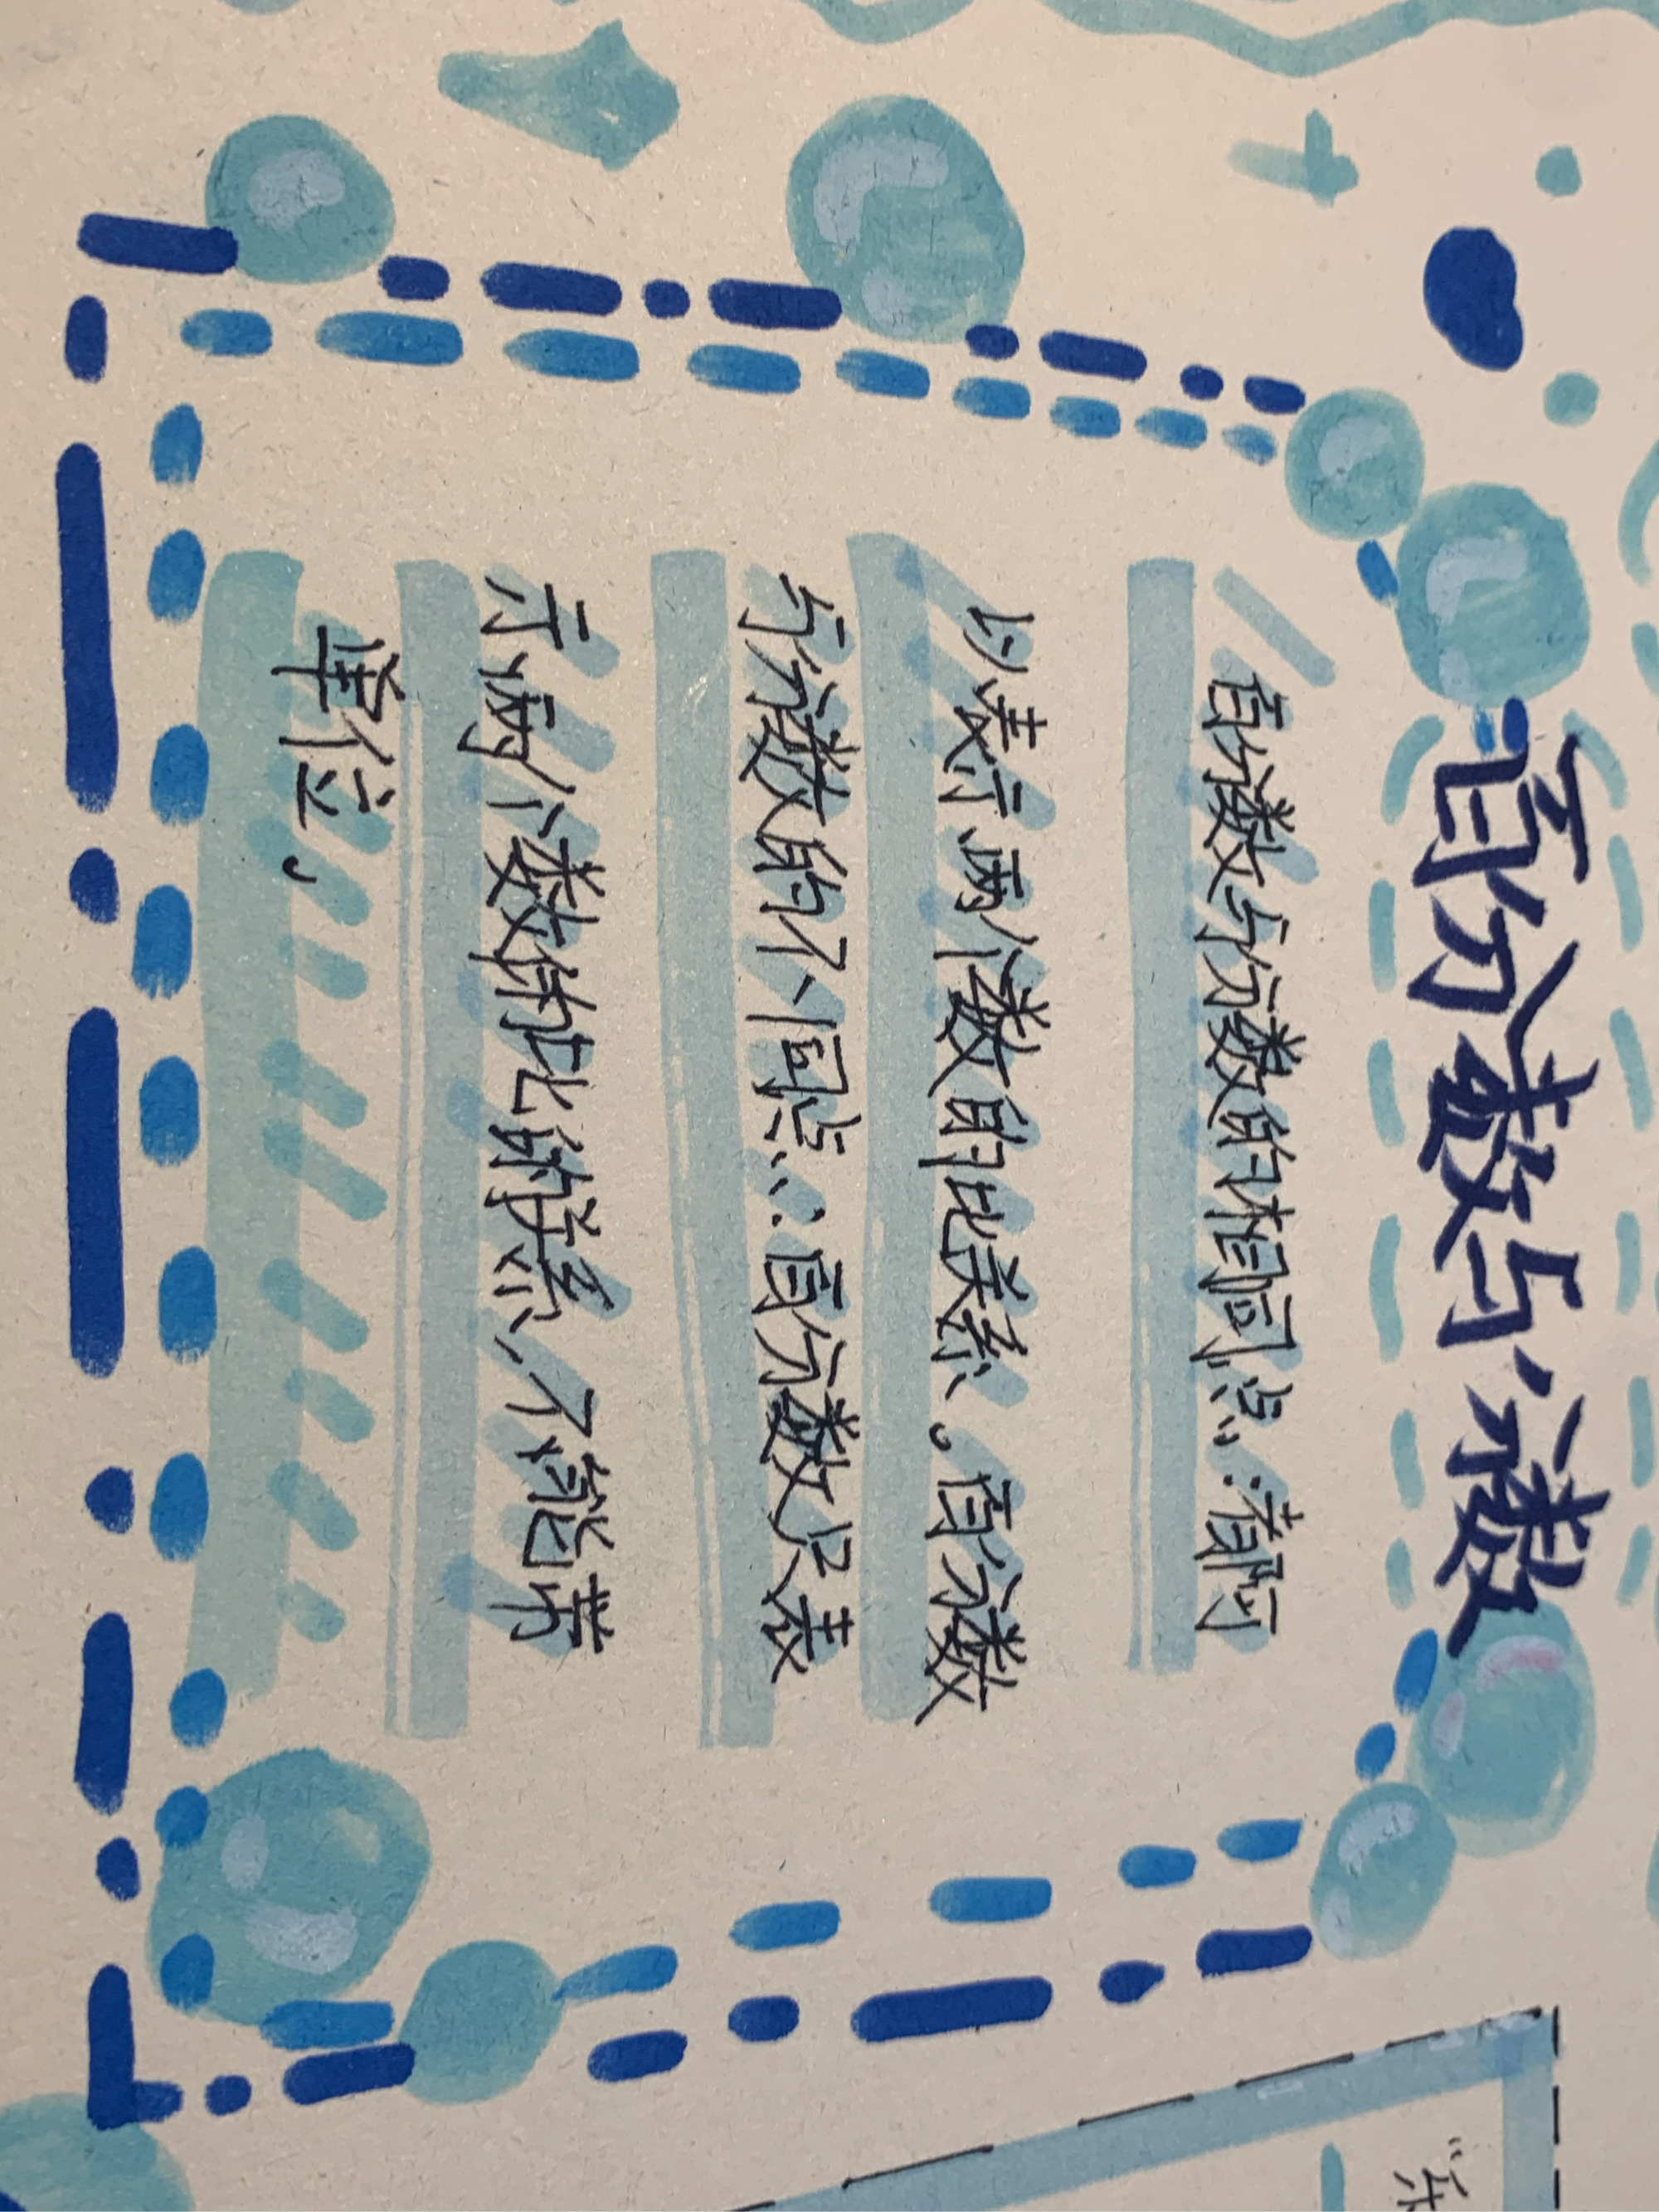 百分数与分数
百分数与分数的相同点：都可
以表示两个数的比关系。百分数
与分数的不同点：百分数只表
示两个数的比的关系，不能带
单位，